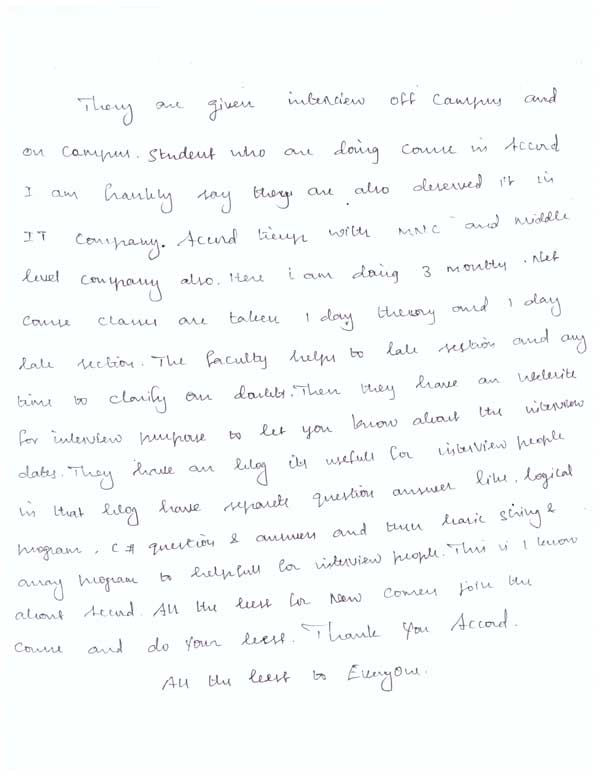 They are given interview off campus and
on campus. Student who are doing course in Accord
I am frankly say there are also deserved it in
IT company. Accord tieup with MNC and middle
level company also. Here i am doing 3 monthly .Net
course classes are taken 1 day theory and 1 day
lab section. The faculty helps to lab section and any
time to clarify our doubts. Then they have an website
for interview purpose to let you know about the interview
dates. They have an blog its usefull for interview people
in that blog have separate question answer like, logical
program, C# question & answers and then basic string &
array program to helpfull for interview people. This is I know
about Accord. All the best for New comers join the
course and do your best. Thank you Accord.
All the best to Everyone.